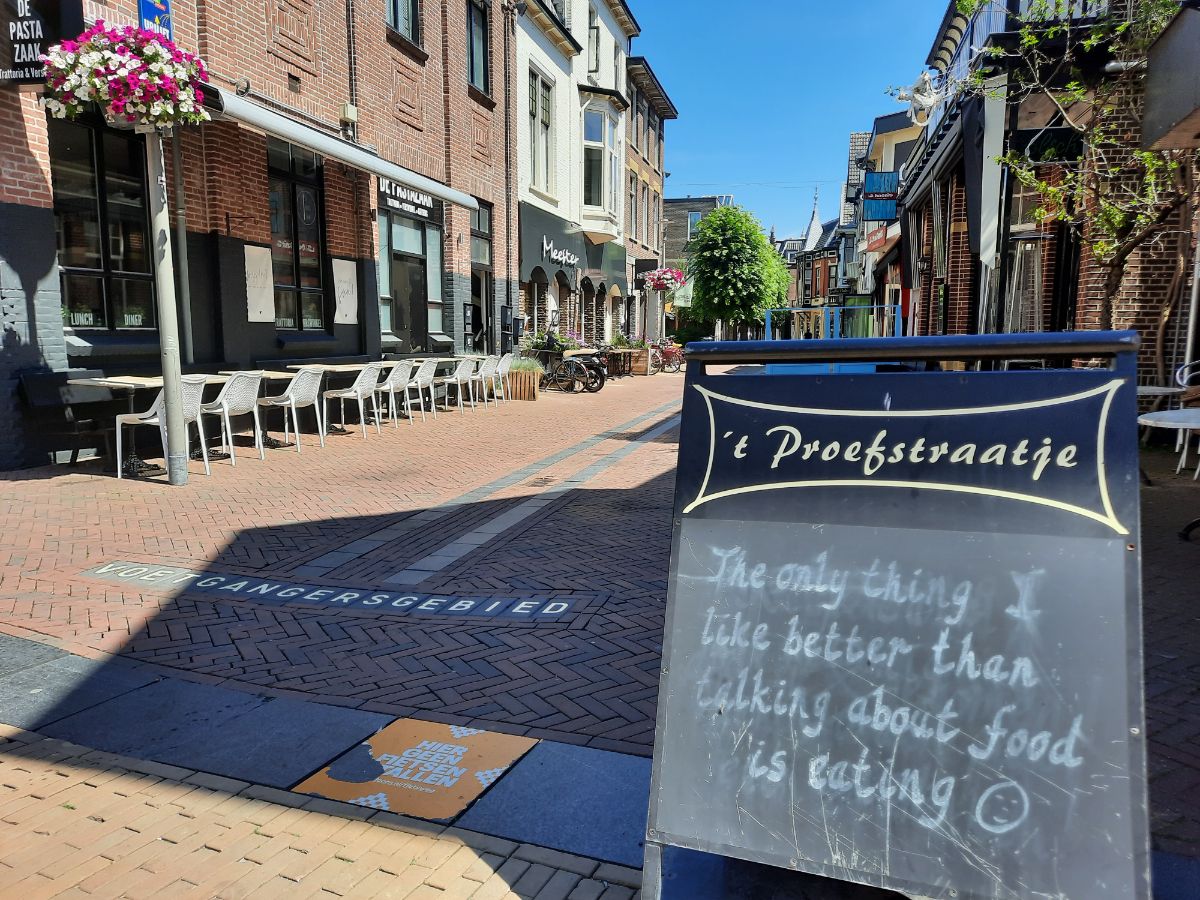 DE
PASTA
ZAAK
Trattoria & Vers
DE PASTAZAAK
LUNCH DINER
Meester
VOETGANGERSGEBIED
HIER
GEEN
FIETSEN
STALLEN
't Proefstraatje
The only thing I
like better than
talking about food
is eating